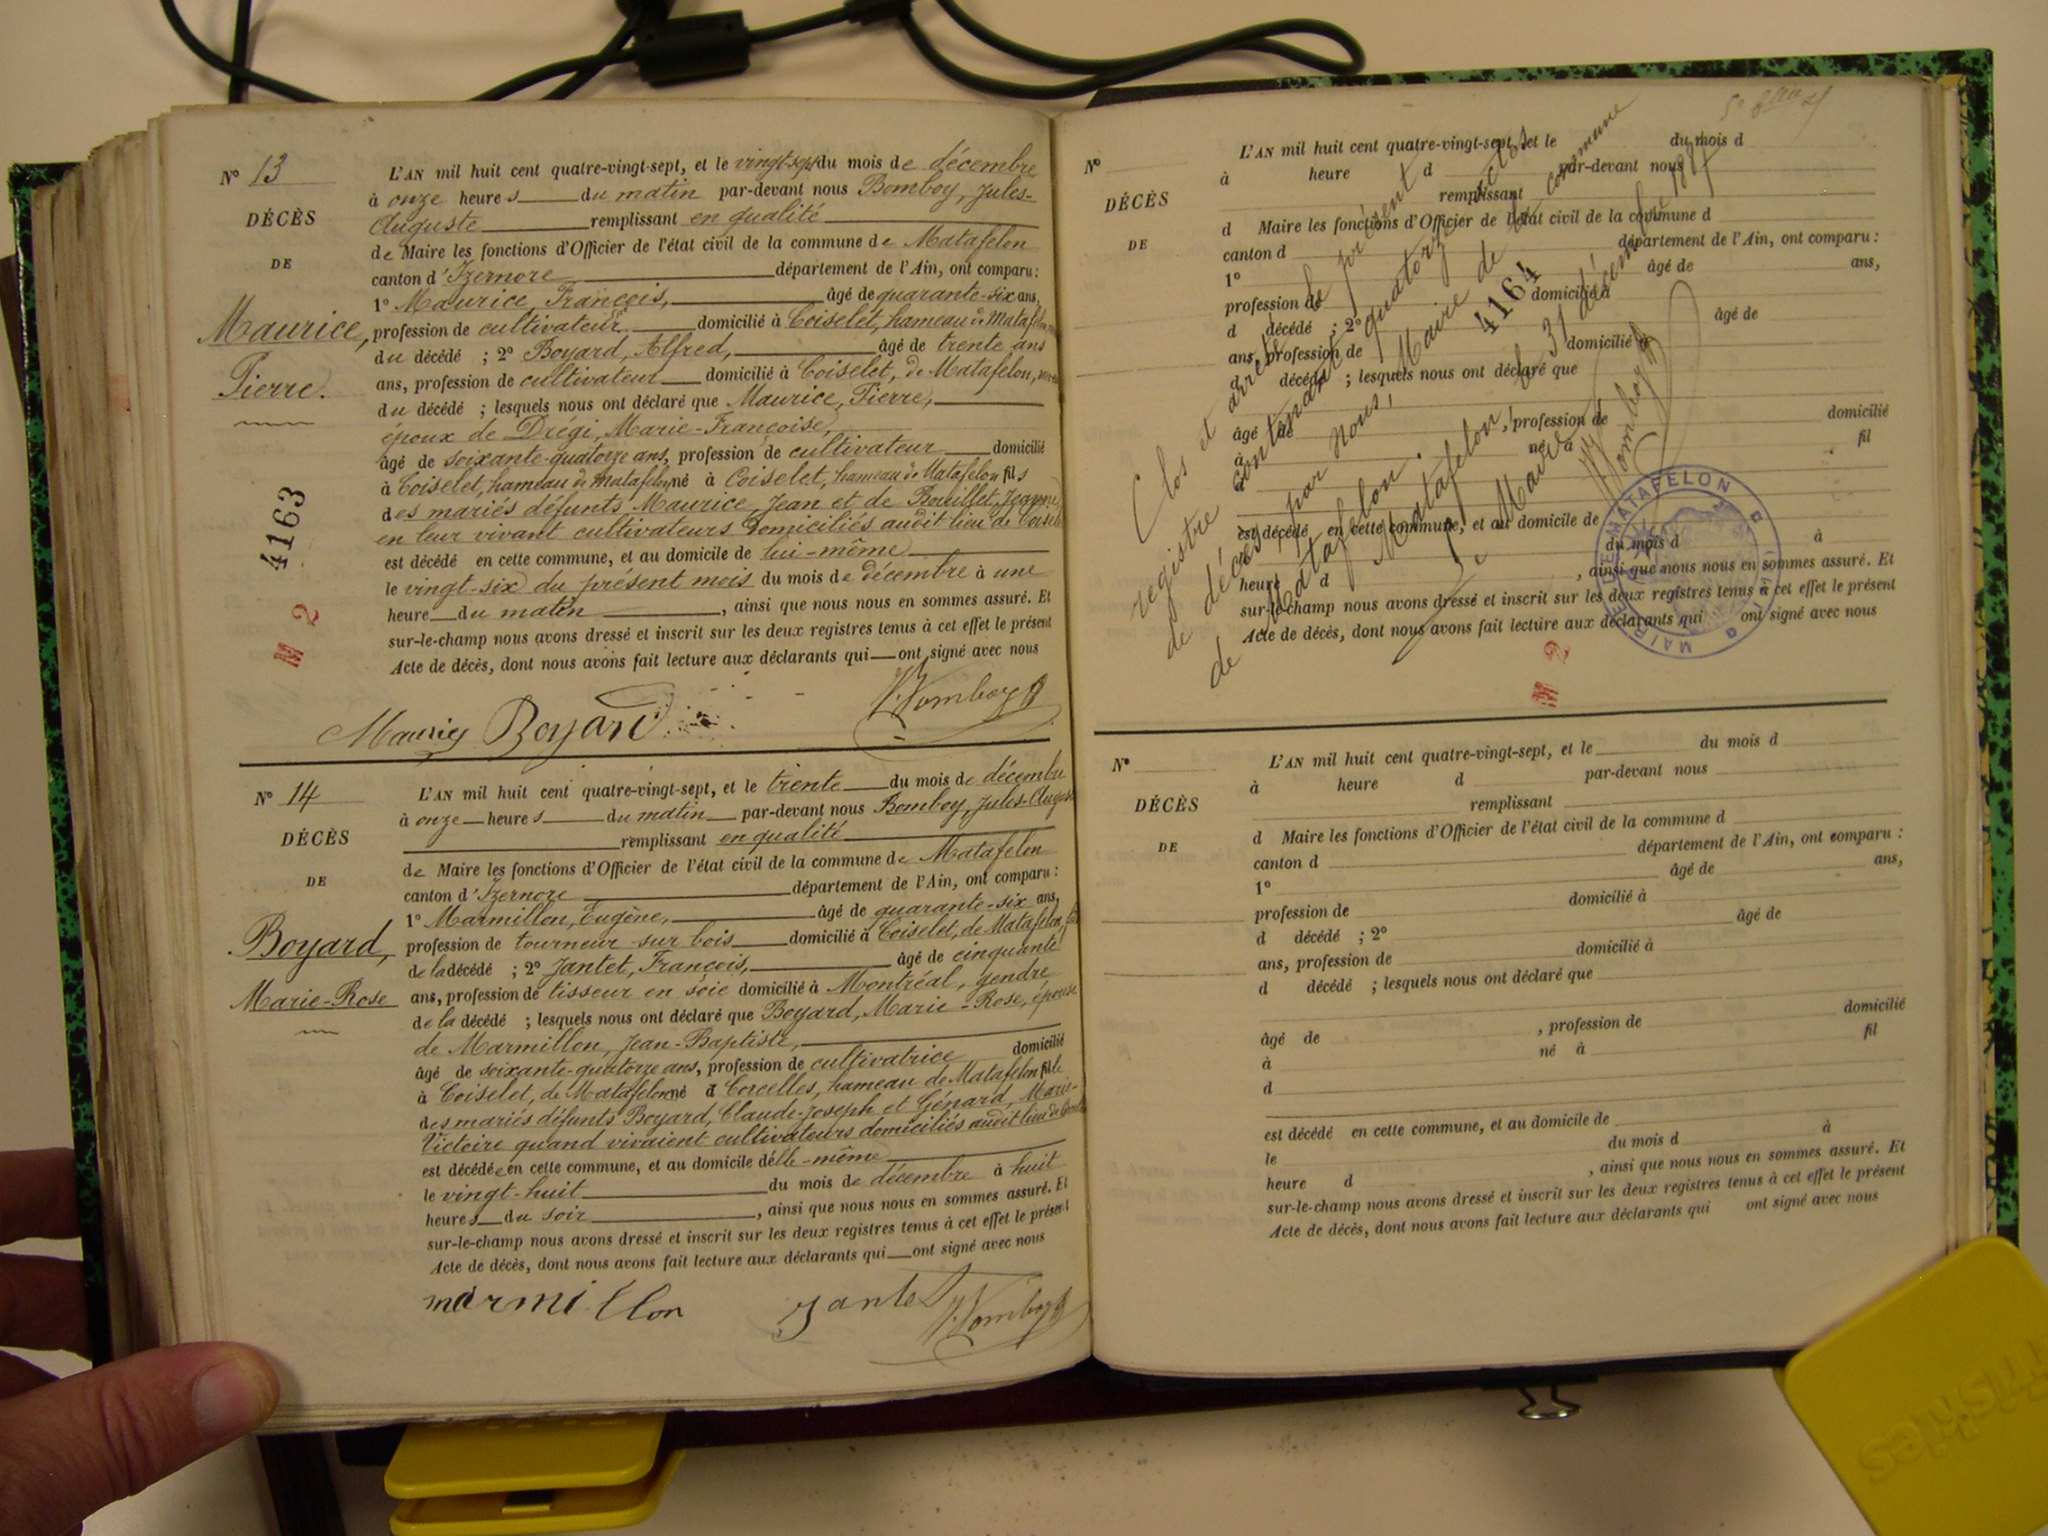 Nº 13
DÉCÈS
DE
Maurice,
Pierre.
4163
M 2
L'AN mil huit cent quatre-vingt-sept, et le vingt-sept du mois de décembre
à onze heures du matin par-devant nous Bomboy, Jules-
Auguste remplissant en qualité
de Maire les fonctions d'Officier de l'état civil de la commune de Matafelon
canton d'Izernore département de l'Ain, ont comparu :
1º Maurice, François, âgé de quarante-six ans,
profession de cultivateur domicilié à Coiselet, hameau de Matafelon
du décédé ; 2º Boyard, Alfred, âgé de trente ans
ans, profession de cultivateur domicilié à Coiselet, de Matafelon,
du décédé ; lesquels nous ont déclaré que Maurice, Pierre,
époux de Drégi, Marie-Françoise,
âgé de soixante-quatorze ans, profession de cultivateur domicilié
à Coiselet, hameau de Matafelon né à Coiselet, hameau de Matafelon fils
des mariés défunts Maurice, Jean et de Bouillet, Jeanne,
en leur vivant cultivateurs domiciliés audit lieu de Coiselet
est décédé en cette commune, et au domicile de lui-même
le vingt-six du présent mois du mois de décembre à une
heure du matin, ainsi que nous nous en sommes assuré. Et
sur-le-champ nous avons dressé et inscrit sur les deux registres tenus à cet effet le présent
Acte de décès, dont nous avons fait lecture aux déclarants qui ont signé avec nous
Maurice Boyard J. Bomboy
Nº 14
DÉCÈS
DE
Boyard,
Marie-Rose
L'AN mil huit cent quatre-vingt-sept, et le trente du mois de décembre
à onze heures du matin par-devant nous Bomboy, Jules-Auguste
remplissant en qualité
de Maire les fonctions d'Officier de l'état civil de la commune de Matafelon
canton d'Izernore département de l'Ain, ont comparu :
1º Marmillon, Eugène, âgé de quarante-six ans,
profession de tourneur sur bois domicilié à Coiselet, de Matafelon, fils
de la décédé ; 2º Jantet, François, âgé de cinquante
ans, profession de tisseur en soie domicilié à Montréal, gendre
de la décédé ; lesquels nous ont déclaré que Boyard, Marie-Rose, épouse
de Marmillon, Jean-Baptiste,
âgé de soixante-quatorze ans, profession de cultivatrice domicilié
à Coiselet, de Matafelon né à Corcelles, hameau de Matafelon fille
des mariés défunts Boyard, Claude-Joseph et Génard, Marie-
Victoire quand vivaient cultivateurs domiciliés audit lieu de
est décédée en cette commune, et au domicile d'elle-même
le vingt-huit du mois de décembre à huit
heures du soir, ainsi que nous nous en sommes assuré. Et
sur-le-champ nous avons dressé et inscrit sur les deux registres tenus à cet effet le présent
Acte de décès, dont nous avons fait lecture aux déclarants qui ont signé avec nous
marmillon Jantet J. Bomboy
Nº
DÉCÈS
DE
L'AN mil huit cent quatre-vingt-sept, et le du mois d
à heure d par-devant nous
remplissant
d Maire les fonctions d'Officier de l'état civil de la commune d
canton d département de l'Ain, ont comparu :
1º âgé de ans,
profession de domicilié à
d décédé ; 2º âgé de
ans, profession de domicilié à
d décédé ; lesquels nous ont déclaré que
âgé de , profession de domicilié
à né à fil
d
est décédé en cette commune, et au domicile de
le du mois d à
heure d , ainsi que nous nous en sommes assuré. Et
sur-le-champ nous avons dressé et inscrit sur les deux registres tenus à cet effet le présent
Acte de décès, dont nous avons fait lecture aux déclarants qui ont signé avec nous
Clos et arrêté le présent
registre contenant quatorze actes
de décès, par nous, Maire de la commune
de Matafelon.
Matafelon, le 31 décembre 1887
Le Maire
J. Bomboy
4164
MAIRIE DE MATAFELON
M 2
Nº
DÉCÈS
DE
L'AN mil huit cent quatre-vingt-sept, et le du mois d
à heure d par-devant nous
remplissant
d Maire les fonctions d'Officier de l'état civil de la commune d
canton d département de l'Ain, ont comparu :
1º âgé de ans,
profession de domicilié à
d décédé ; 2º âgé de
ans, profession de domicilié à
d décédé ; lesquels nous ont déclaré que
âgé de , profession de domicilié
à né à fil
d
est décédé en cette commune, et au domicile de
le du mois d à
heure d , ainsi que nous nous en sommes assuré. Et
sur-le-champ nous avons dressé et inscrit sur les deux registres tenus à cet effet le présent
Acte de décès, dont nous avons fait lecture aux déclarants qui ont signé avec nous